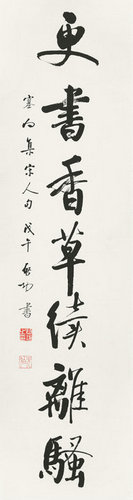 更書香草續離騷
塞向集宋人句戊午啟功書